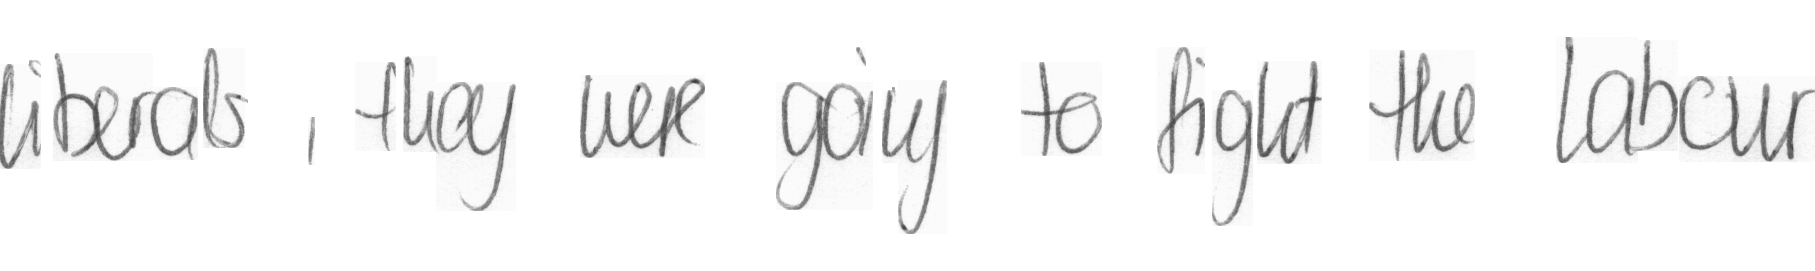 liberals , they were going to fight the Labour